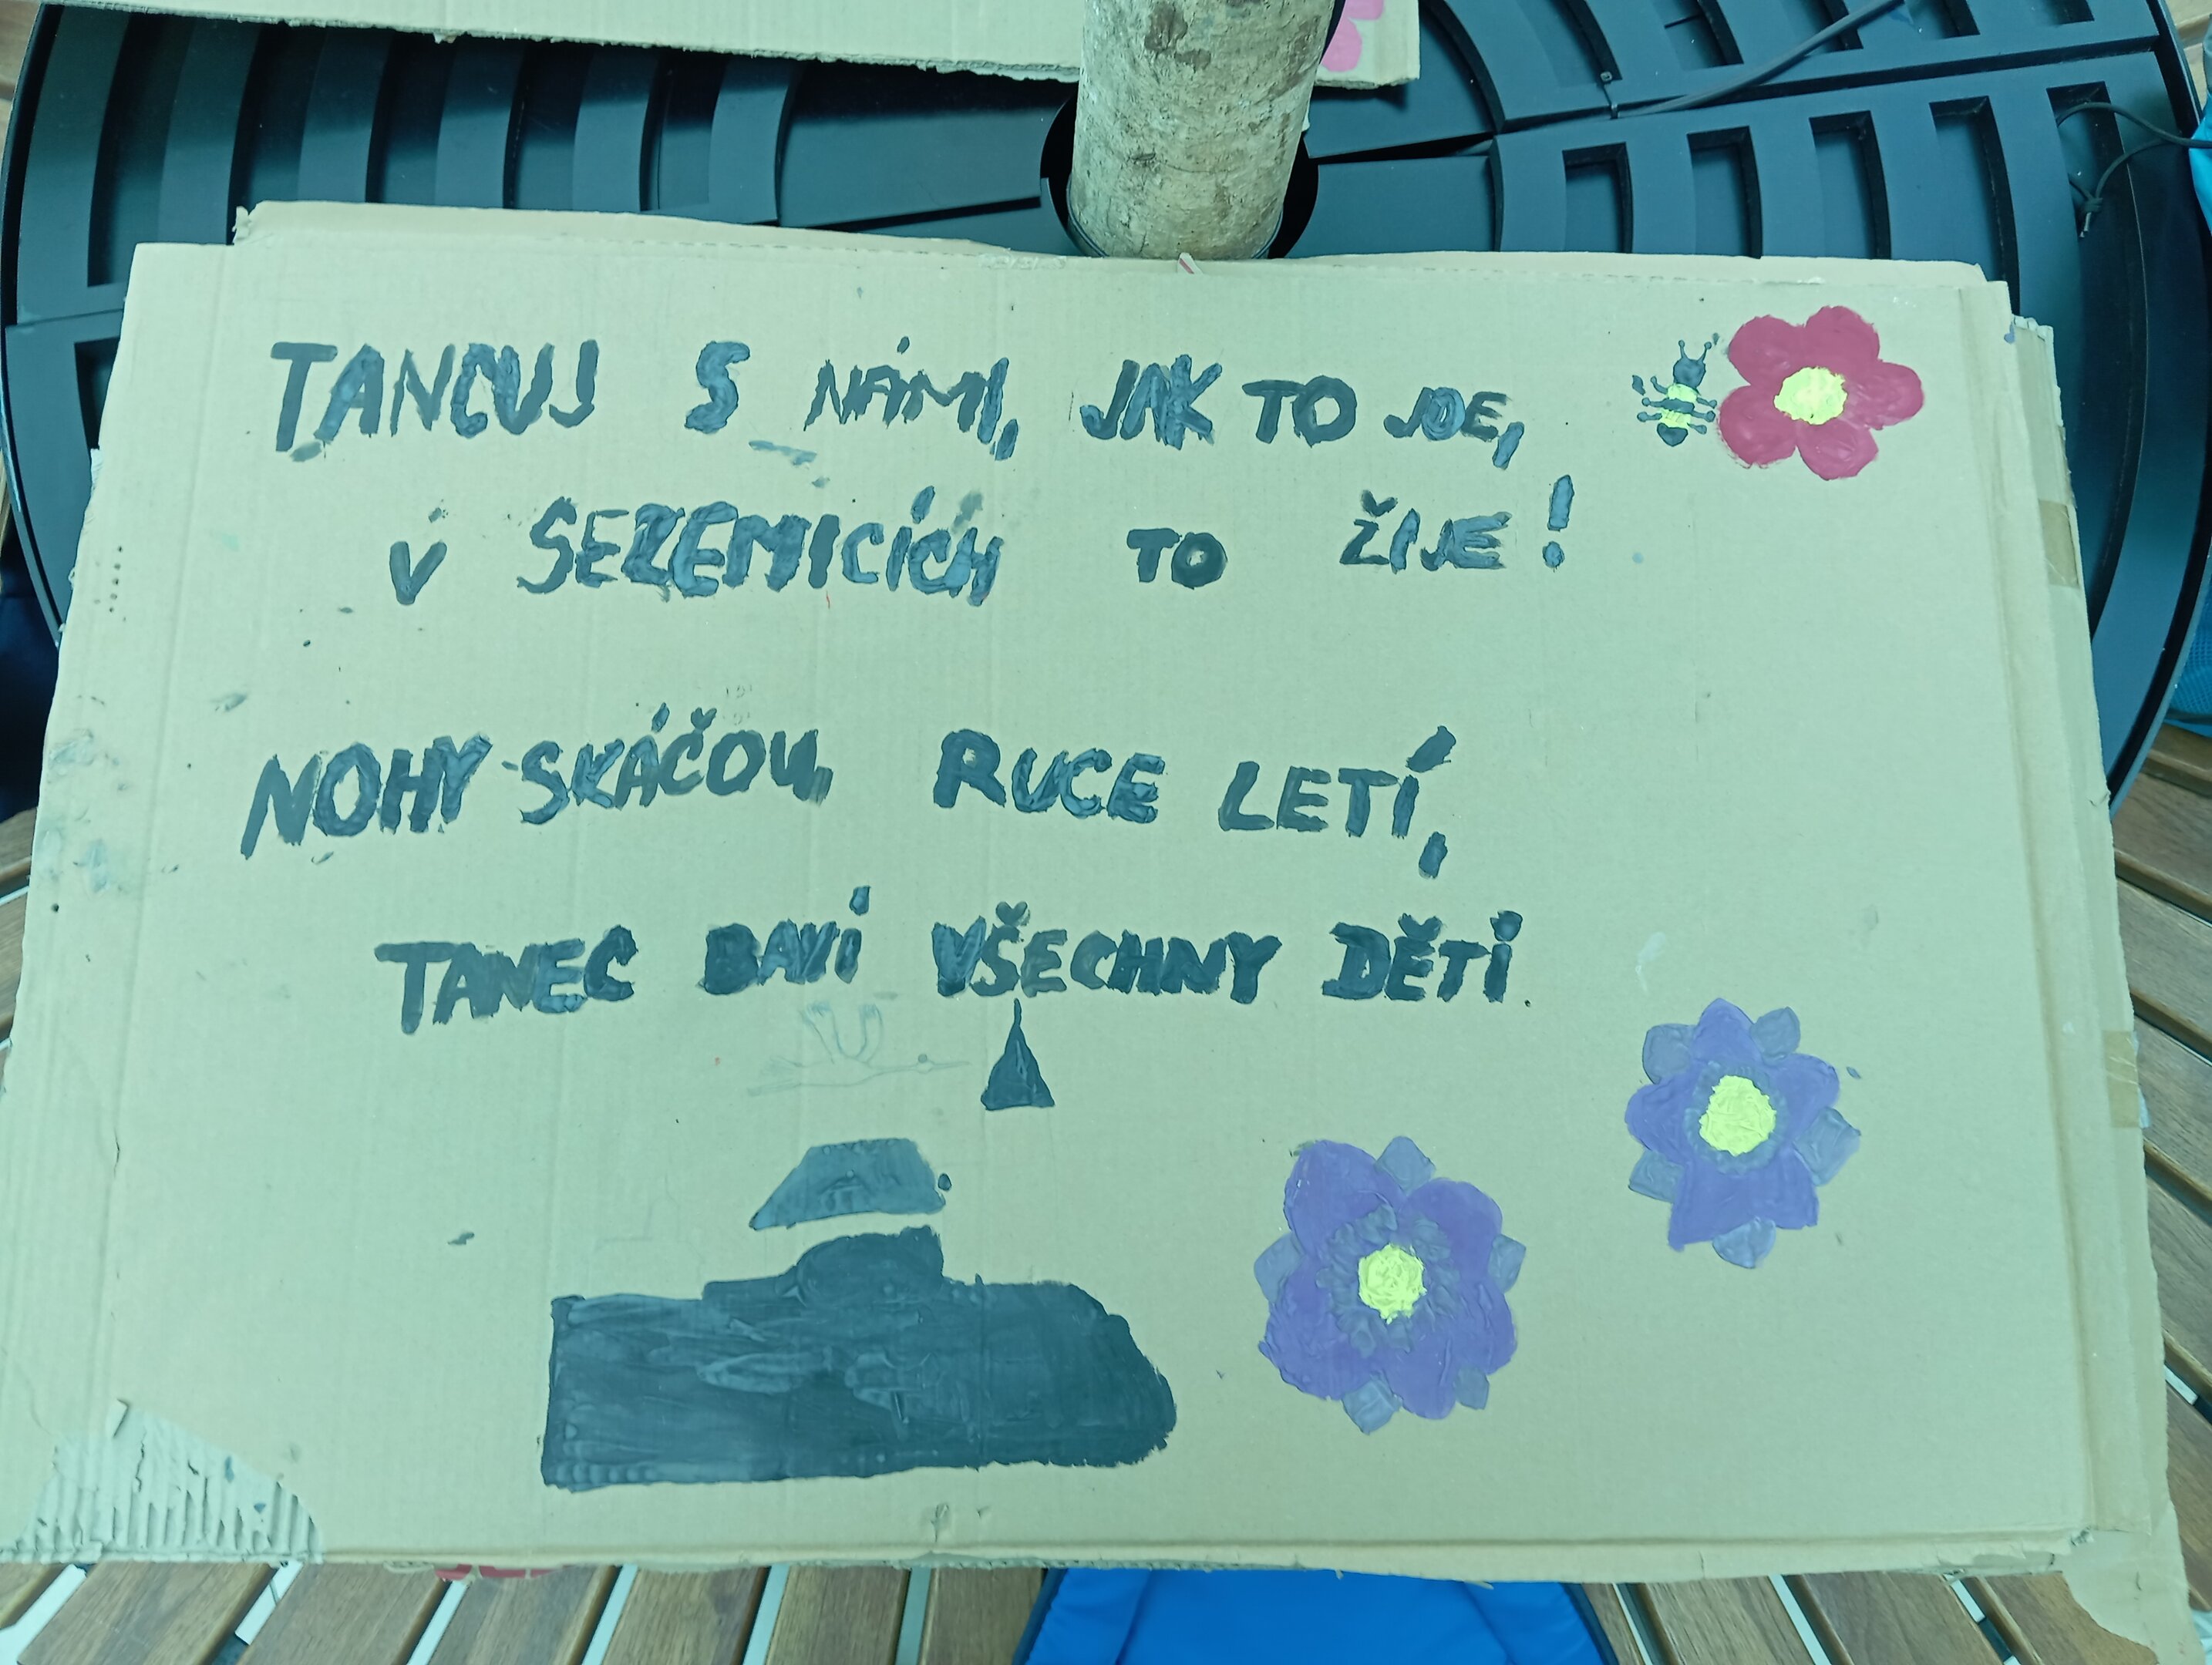 TANCUJ S NÁMI, JAK TO JDE,
V SEZEMICÍCH TO ŽIJE!
NOHY SKÁČOU, RUCE LETÍ,
TANEC BAVÍ VŠECHNY DĚTI